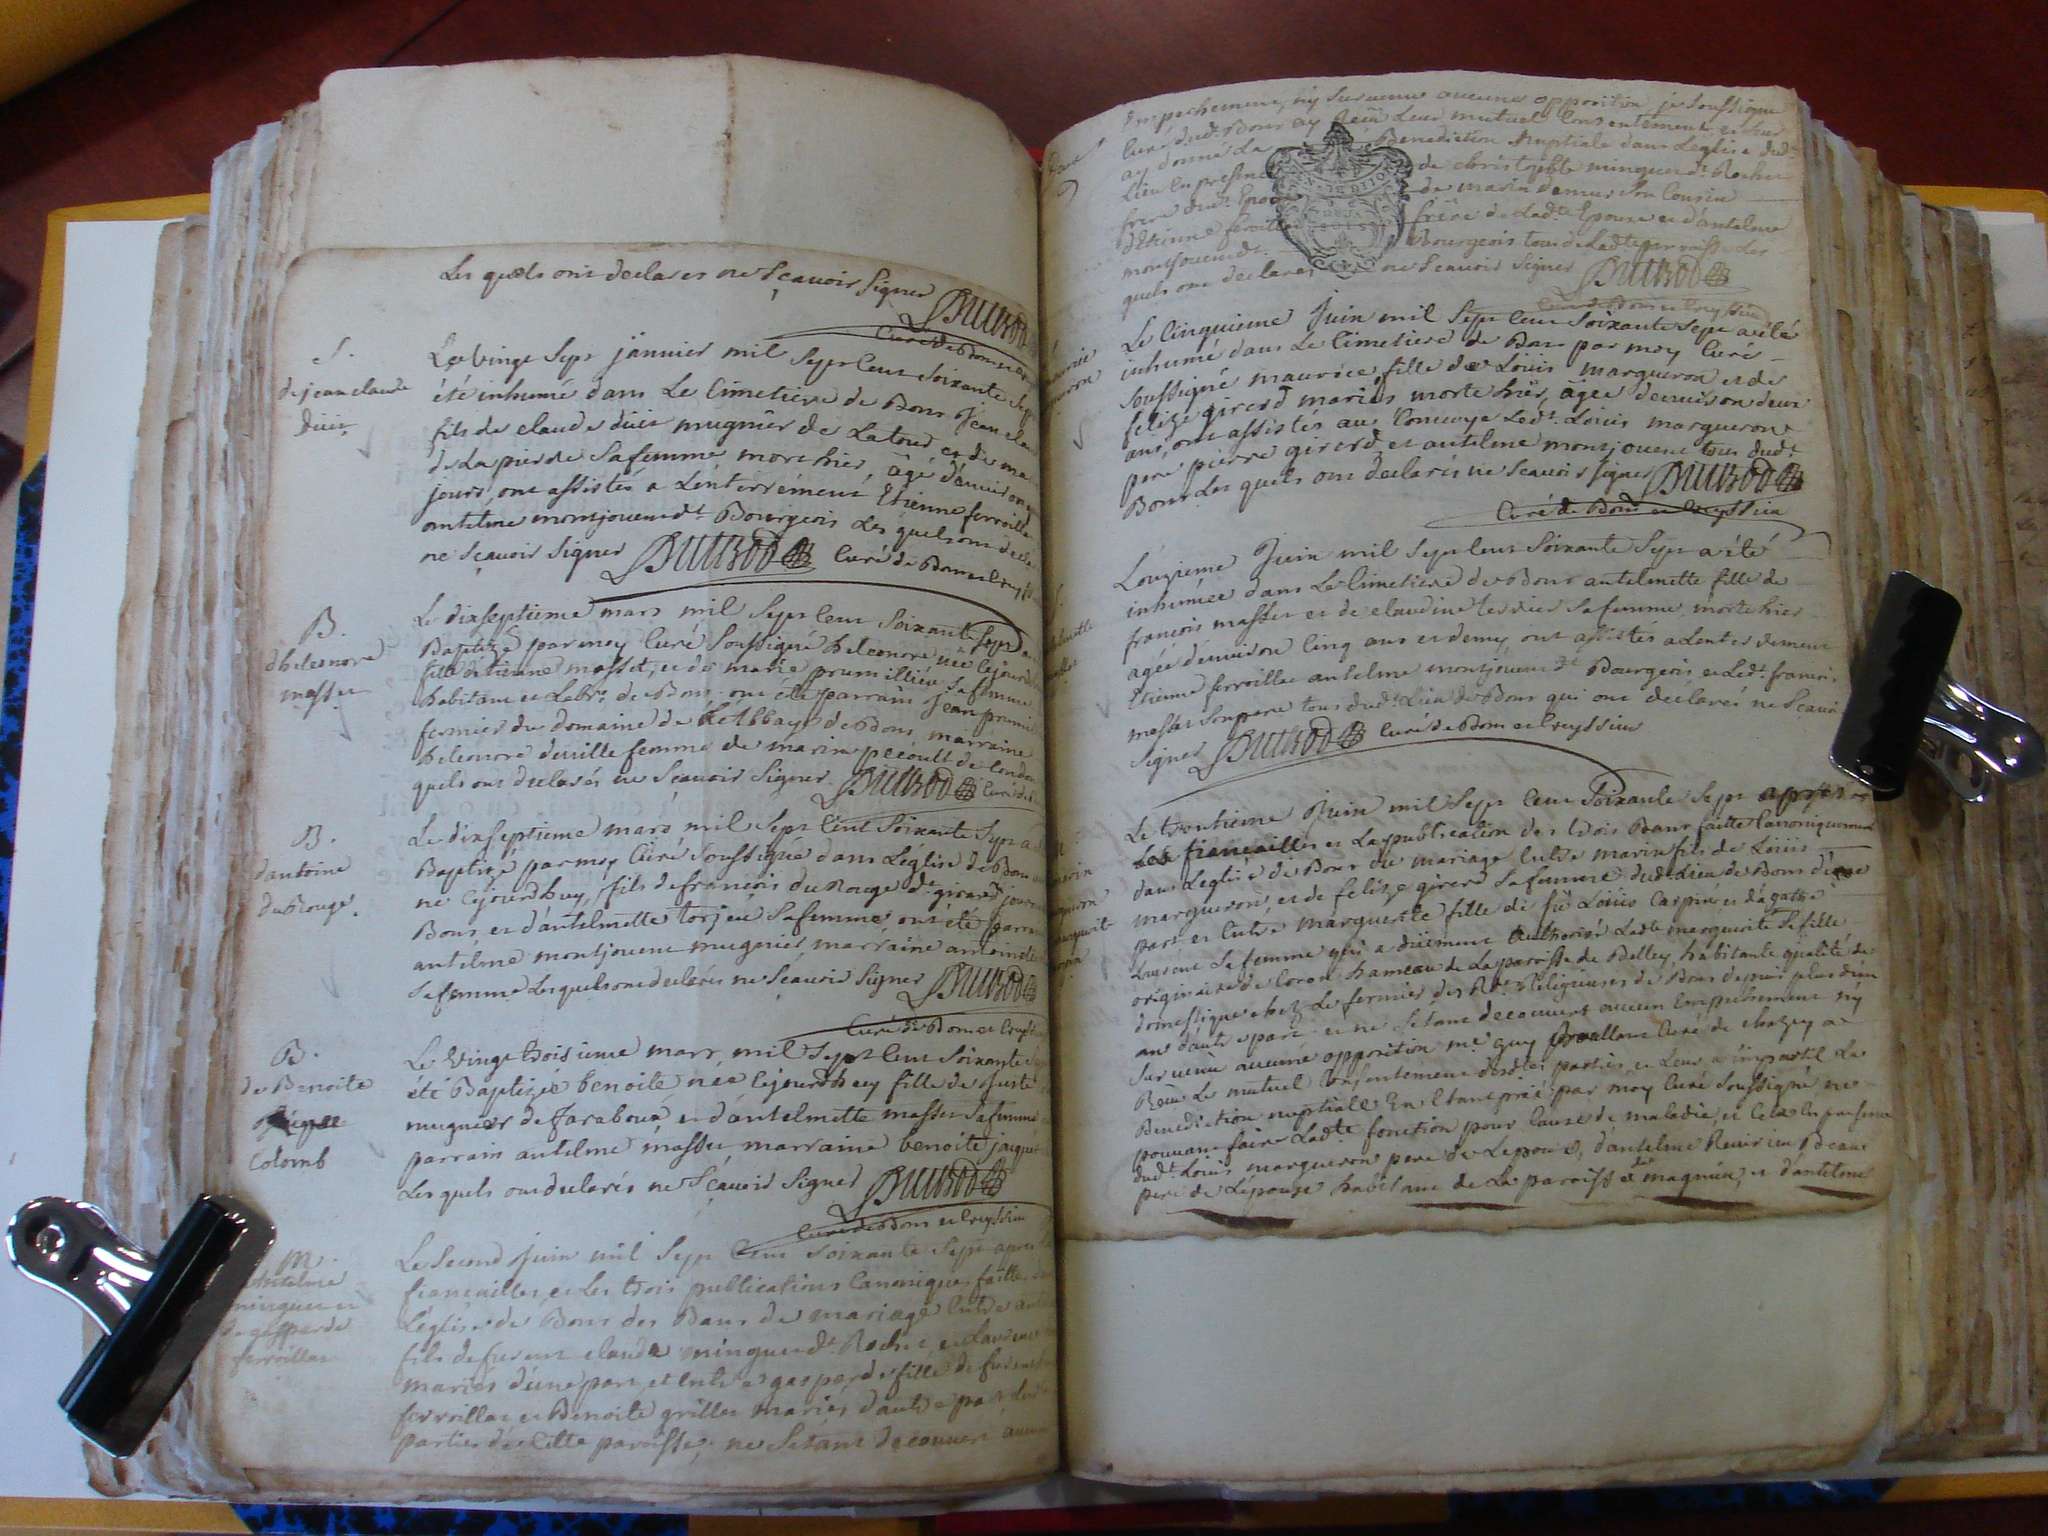 Les quels ont declarés ne Sçavoir Signer Dutrod
Curé de Bons
S.
de jean claude
Duit
Le vingt Sept janvier mil Sept Cent Soixante Sept
été inhumé dans Le Cimetiere de Bons Jean
fils de claude duit mugnier de La tour et de
de La pierre Sa femme mort hier, âgé d'environ
jours, ont assistés a L'enterrement Etienne ferroillat
antelme montjouvent dt. Bourgeois Les quels ont
ne Sçavoir Signer Dutrod Curé de Bons et Creyssieu
B.
d'heleonore
masset
Le dixseptieme mars mil Sept Cent Soixante Sept
Baptizé par moy Curé Soussigné heleonore née
fille d'etienne masset, et de marie prumillieu Sa femme
habitant et Labr. de Bons, ont été parrain Jean
fermier du domaine de L'Abbaye de Bons, marraine
heleonore deville femme de marin
quels ont declarés ne Sçavoir Signer Dutrod Curé de
B.
d'antoine
du Rouge.
Le dixseptieme mars mil Sept Cent Soixante Sept a
Baptizé par moy Curé Soussigné dans L'église de Bons
ne Cejourdhuy, fils de francois du Rouge dt. girard
Bons et d'antelmette torjeu Sa femme, ont été
antelme montjouvent mugnier, marraine
Sa femme Lesquels ont declarés ne Sçavoir Signer Dutrod
Curé de Bons et Creyssieu
B.
de Benoite
Colomb
Le Vingt troisieme mars mil Sept Cent Soixante
été Baptizée benoite née Cejourdhuy fille de juste
mugnier de faraboua et d'antelmette masset Sa femme
parrain antelme masset marraine benoite
Les quels ont declarés ne Sçavoir Signer Dutrod
Curé de Bons et Creyssieu
M.
d'antelme
minguet et
de gasparde
ferroillat
Le Second Juin mil Sept Cent Soixante Sept apres
fiancailles et Les trois publications Canoniques faittes
L'église de Bons des Bans de mariage Entre
fils de feu claude minguet dt. Rochet, et
mariés d'une part, et Entre gasparde fille de feu
ferroillat et Benoite grillet mariés d'autre part
parties de Cette paroisse, ne S'etant decouvert
Empechement, ny Survenu aucune opposition, je Soussigné
Curé dudt. Bons ay reçu Leur mutuel Consentement et Leur
ay donné La Benediction Nuptiale dans L'eglise dudt.
Lieu En presence de christophle minguet dt. Rochet
frere dudt. Epoux de marin Son Cousin
d'Etienne ferroillat frere de Ladte. Epouse et d'antelme
montjouvent dt. Bourgeois tous de Ladte. paroisse Les
quels ont declarés ne Sçavoir Signer Dutrod
Curé de Bons et Creyssieu
Le Cinquieme Juin mil Sept Cent Soixante Sept a été
inhumé dans Le Cimetiere de Bons par moy Curé
Soussigné maurice, fille de Loüis margueron et de
felize girerd mariés morte hier, âgée d'environ deux
ans, ont assistés au Convoye Ledt. Loüis margueron
pere pierre girerd et antelme montjouvent tous dudt.
Bons Les quels ont declarés ne Scavoir Signer Dutrod
Curé de Bons et Creyssieu
L'onzieme Juin mil Sept Cent Soixante Sept a été
inhumée dans Le Cimetiere de Bons antelmette fille de
francois masset et de claudine terrier Sa femme, morte hier
agée d'environ Cinq ans et demy ont assistés a L'enterrement
Etienne ferroillat antelme montjouvent dt. Bourgeois, et Ledt. francois
masset Son pere tous dudt. Lieu de Bons qui ont declaré ne Scavoir
Signer Dutrod Curé de Bons et Creyssieu
Le trentieme Juin mil Sept Cent Soixante Sept apres
Les fiançailles et La publication des trois Bans faitte Canoniquement
dans L'église de Bons du mariage Entre marin fils de Loüis
margueron, et de felize girerd Sa femme dudt. Lieu de Bons d'une
part et Entre marguerite fille de fû Loüis Carpin et d'agathe
Sa femme qui a düement Authorisé Ladte. marguerite Sa fille
originaire de Coron hameau de La paroisse de Belley, habitante qualité de
domestique chez Le fermier des Rdes. Religieuses de Bons depuis plus d'un
an d'autre part et ne S'etant decouvert aucun Empechement ny
Survenu aucune opposition me. guy Curé de chazey a
Reçu Le mutuel Consentement desdtes. parties, et Leur a imparti La
Benediction nuptiale En Etant prié par moy Curé Soussigné ne
pouvant faire Ladte. fonction pour Cause de maladie, et Cela En presence
dudt. Loüis margueron pere de L'epoux, d'antelme Beau
pere de L'épouse habitant de La paroisse de magnieu, et d'antelme